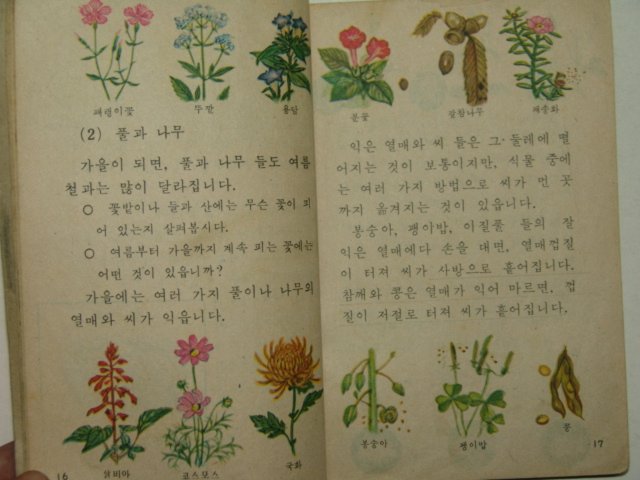 패랭이꽃
뚜깔
용담
(2) 풀과 나무
가을이 되면, 풀과 나무 들도 여름
철과는 많이 달라집니다.
○ 꽃밭이나 들과 산에는 무슨 꽃이 피
어 있는지 살펴봅시다.
○ 여름부터 가을까지 계속 피는 꽃에는
어떤 것이 있읍니까?
가을에는 여러 가지 풀이나 나무의
열매와 씨가 익읍니다.
살비아
코스모스
국화
16
분꽃
갈참나무
채송화
익은 열매와 씨 들은 그 둘레에 떨
어지는 것이 보통이지만, 식물 중에
는 여러 가지 방법으로 씨가 먼 곳
까지 옮겨지는 것이 있읍니다.
봉숭아, 괭이밥, 이질풀 들의 잘
익은 열매에다 손을 대면, 열매껍질
이 터져 씨가 사방으로 흩어집니다.
참깨와 콩은 열매가 익어 마르면, 껍
질이 저절로 터져 씨가 흩어집니다.
봉숭아
괭이밥
콩
17